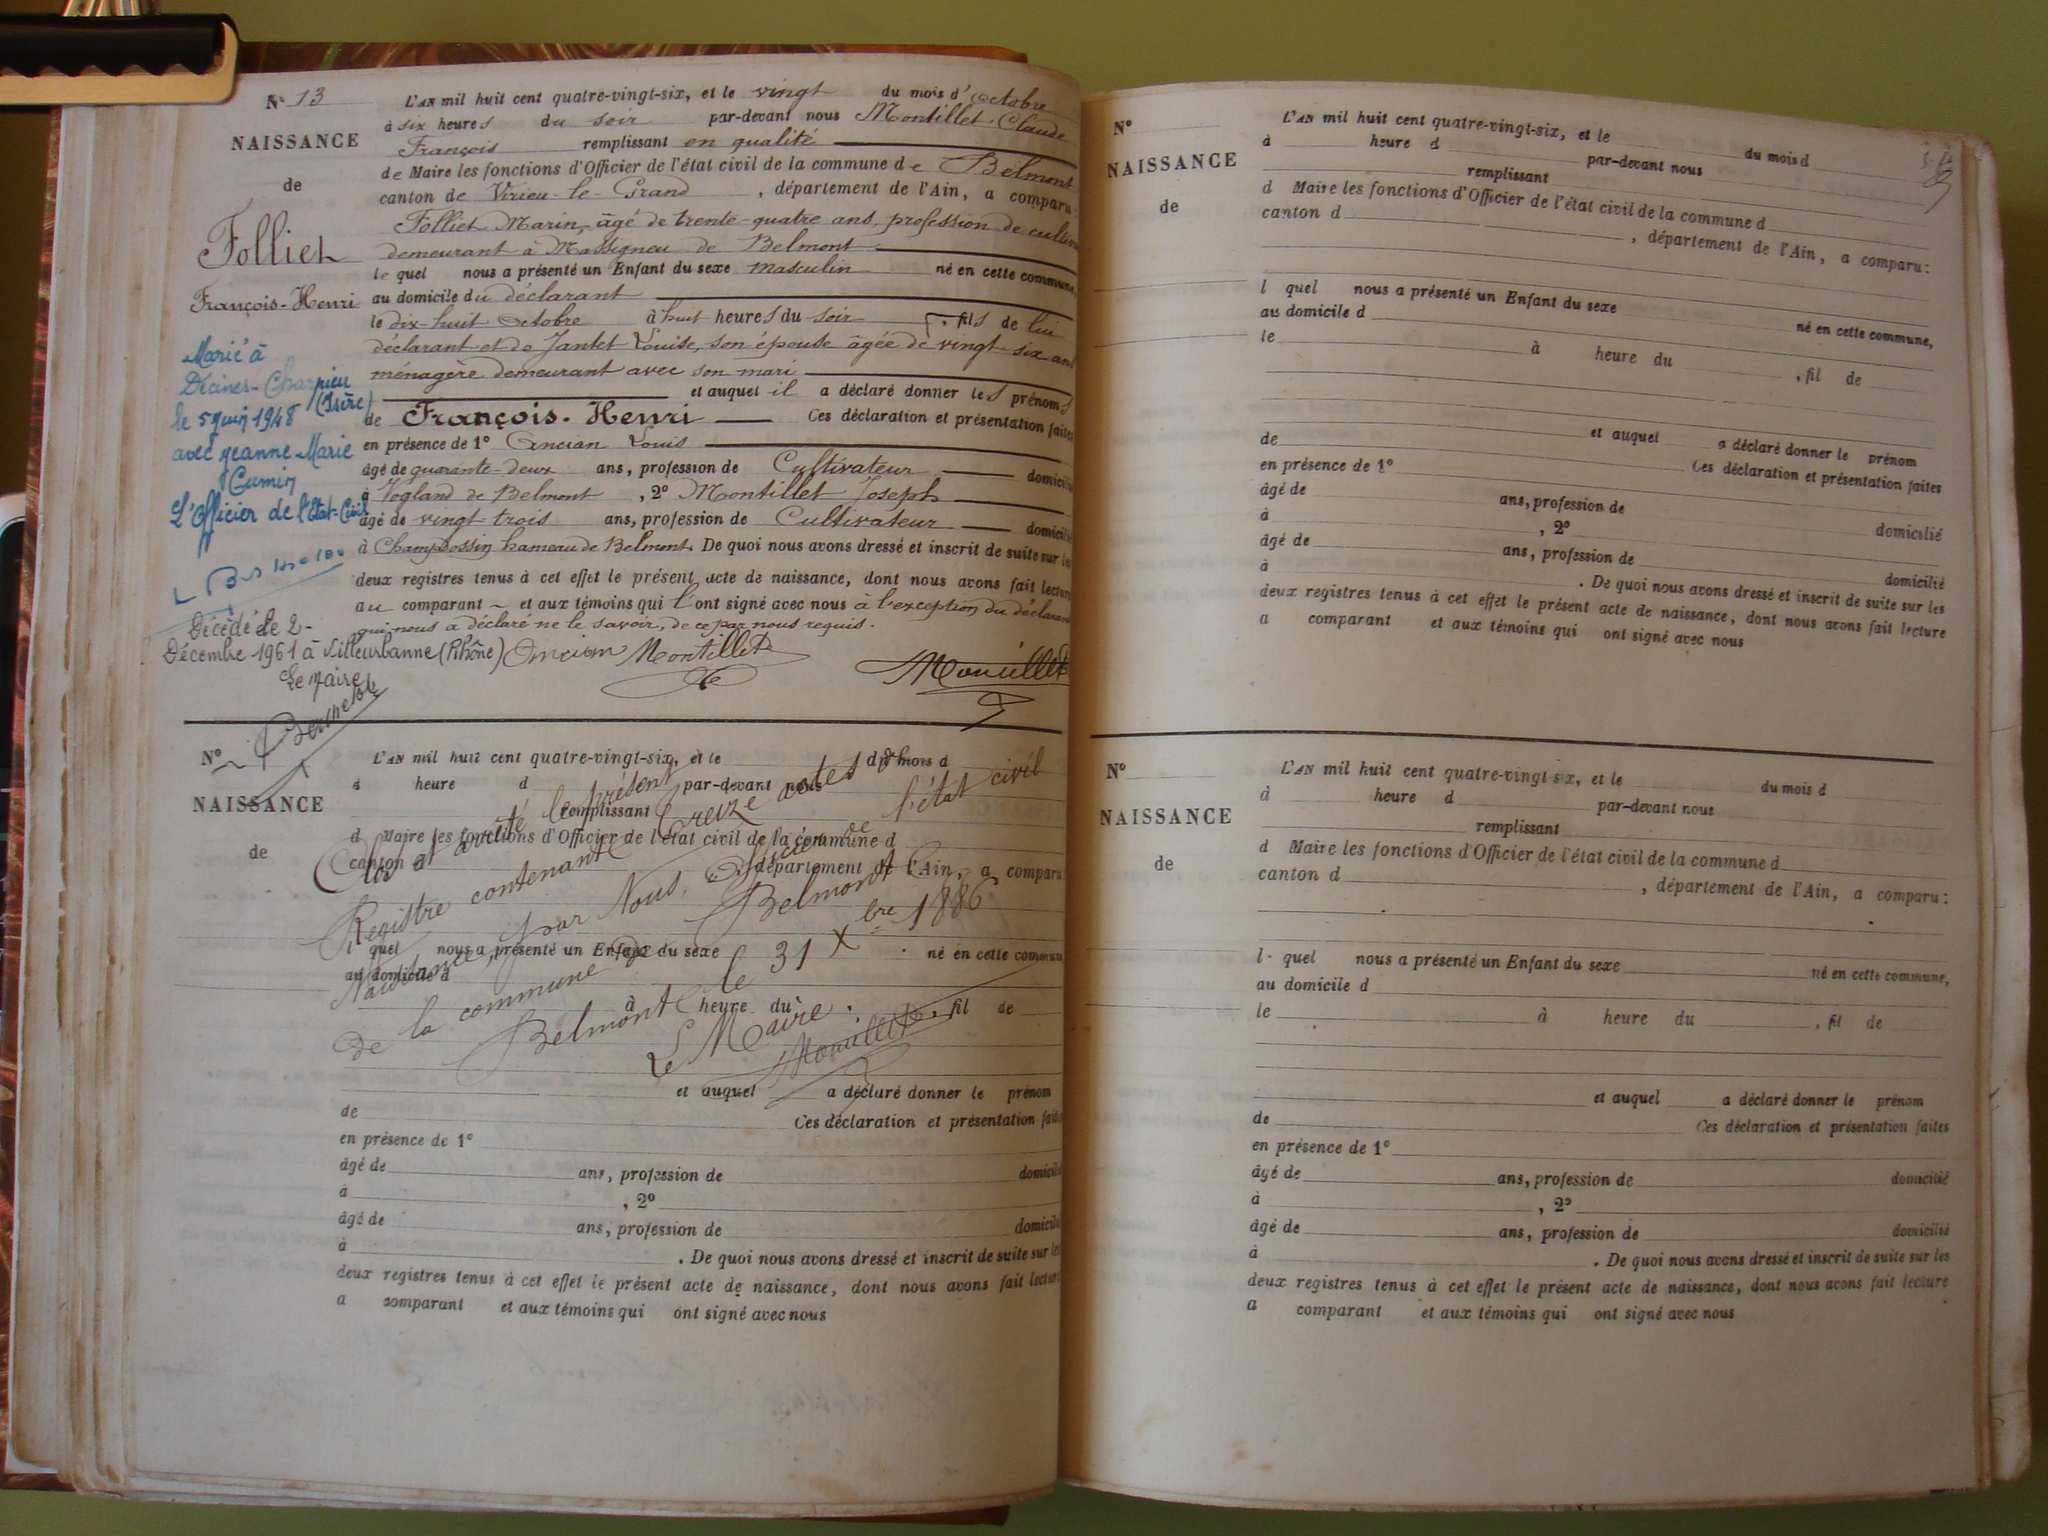 N° 13
NAISSANCE
de
Folliet
François-Henri
Marié à
Décines-Charpieu
(Isère)
le 5 juin 1948
avec Jeanne-Marie
Cumin
L'Officier de l'Etat-Civil
Décédé le 2
Décembre 1961 à Villeurbanne (Rhône)
Le Maire
L'AN mil huit cent quatre-vingt-six, et le vingt du mois d'octobre
à six heures du soir par-devant nous Montillet Claude
François remplissant en qualité
de Maire les fonctions d'Officier de l'état civil de la commune de Belmont
canton de Virieu-le-Grand, département de l'Ain, a comparu:
Folliet Marin, âgé de trente-quatre ans, profession de cultiva
demeurant à Massigneu de Belmont
lequel nous a présenté un Enfant du sexe masculin né en cette commune,
au domicile du déclarant
le dix-huit octobre à huit heures du soir, fils de lui
déclarant et de Jantet Louise, son épouse âgée de vingt-six ans
ménagère demeurant avec son mari
et auquel il a déclaré donner les prénoms
de François-Henri Ces déclaration et présentation faites
en présence de 1° Ancian Louis
âgé de quarante-deux ans, profession de Cultivateur domicilié
à Vogland de Belmont, 2° Montillet Joseph
âgé de vingt-trois ans, profession de Cultivateur domicilié
à Champdossin hameau de Belmont. De quoi nous avons dressé et inscrit de suite sur les
deux registres tenus à cet effet le présent acte de naissance, dont nous avons fait lecture
au comparant et aux témoins qui l'ont signé avec nous à l'exception du déclarant
qui nous a déclaré ne le savoir, de ce par nous requis.
Ancian Montillet Montillet
N°
NAISSANCE
de
L'AN mil huit cent quatre-vingt-six, et le du mois d
à heure d par-devant nous
remplissant
d Maire les fonctions d'Officier de l'état civil de la commune d
canton d, département de l'Ain, a comparu:
l quel nous a présenté un Enfant du sexe né en cette commune
au domicile d
à heure du, fil de
et auquel a déclaré donner le prénom
de Ces déclaration et présentation faites
en présence de 1°
âgé de ans, profession de domicilié
à, 2°
âgé de ans, profession de domicilié
à. De quoi nous avons dressé et inscrit de suite sur les
deux registres tenus à cet effet le présent acte de naissance, dont nous avons fait lecture
a comparant et aux témoins qui ont signé avec nous
Clos et arrêté le présent
Registre contenant treize actes de
Naissance, par Nous, Officier de l'état civil
de la commune de Belmont
Belmont le 31 Xbre 1886
Le Maire
Montillet
N°
NAISSANCE
de
L'AN mil huit cent quatre-vingt-six, et le du mois d
à heure d par-devant nous
remplissant
d Maire les fonctions d'Officier de l'état civil de la commune d
canton d, département de l'Ain, a comparu:
l quel nous a présenté un Enfant du sexe né en cette commune,
au domicile d
le à heure du, fil de
et auquel a déclaré donner le prénom
de Ces déclaration et présentation faites
en présence de 1°
âgé de ans, profession de domicilié
à, 2°
âgé de ans, profession de domicilié
à. De quoi nous avons dressé et inscrit de suite sur les
deux registres tenus à cet effet le présent acte de naissance, dont nous avons fait lecture
a comparant et aux témoins qui ont signé avec nous
N°
NAISSANCE
de
L'AN mil huit cent quatre-vingt-six, et le du mois d
à heure d par-devant nous
remplissant
d Maire les fonctions d'Officier de l'état civil de la commune d
canton d, département de l'Ain, a comparu:
l quel nous a présenté un Enfant du sexe né en cette commune,
au domicile d
le à heure du, fil de
et auquel a déclaré donner le prénom
de Ces déclaration et présentation faites
en présence de 1°
âgé de ans, profession de domicilié
à, 2°
âgé de ans, profession de domicilié
à. De quoi nous avons dressé et inscrit de suite sur les
deux registres tenus à cet effet le présent acte de naissance, dont nous avons fait lecture
a comparant et aux témoins qui ont signé avec nous